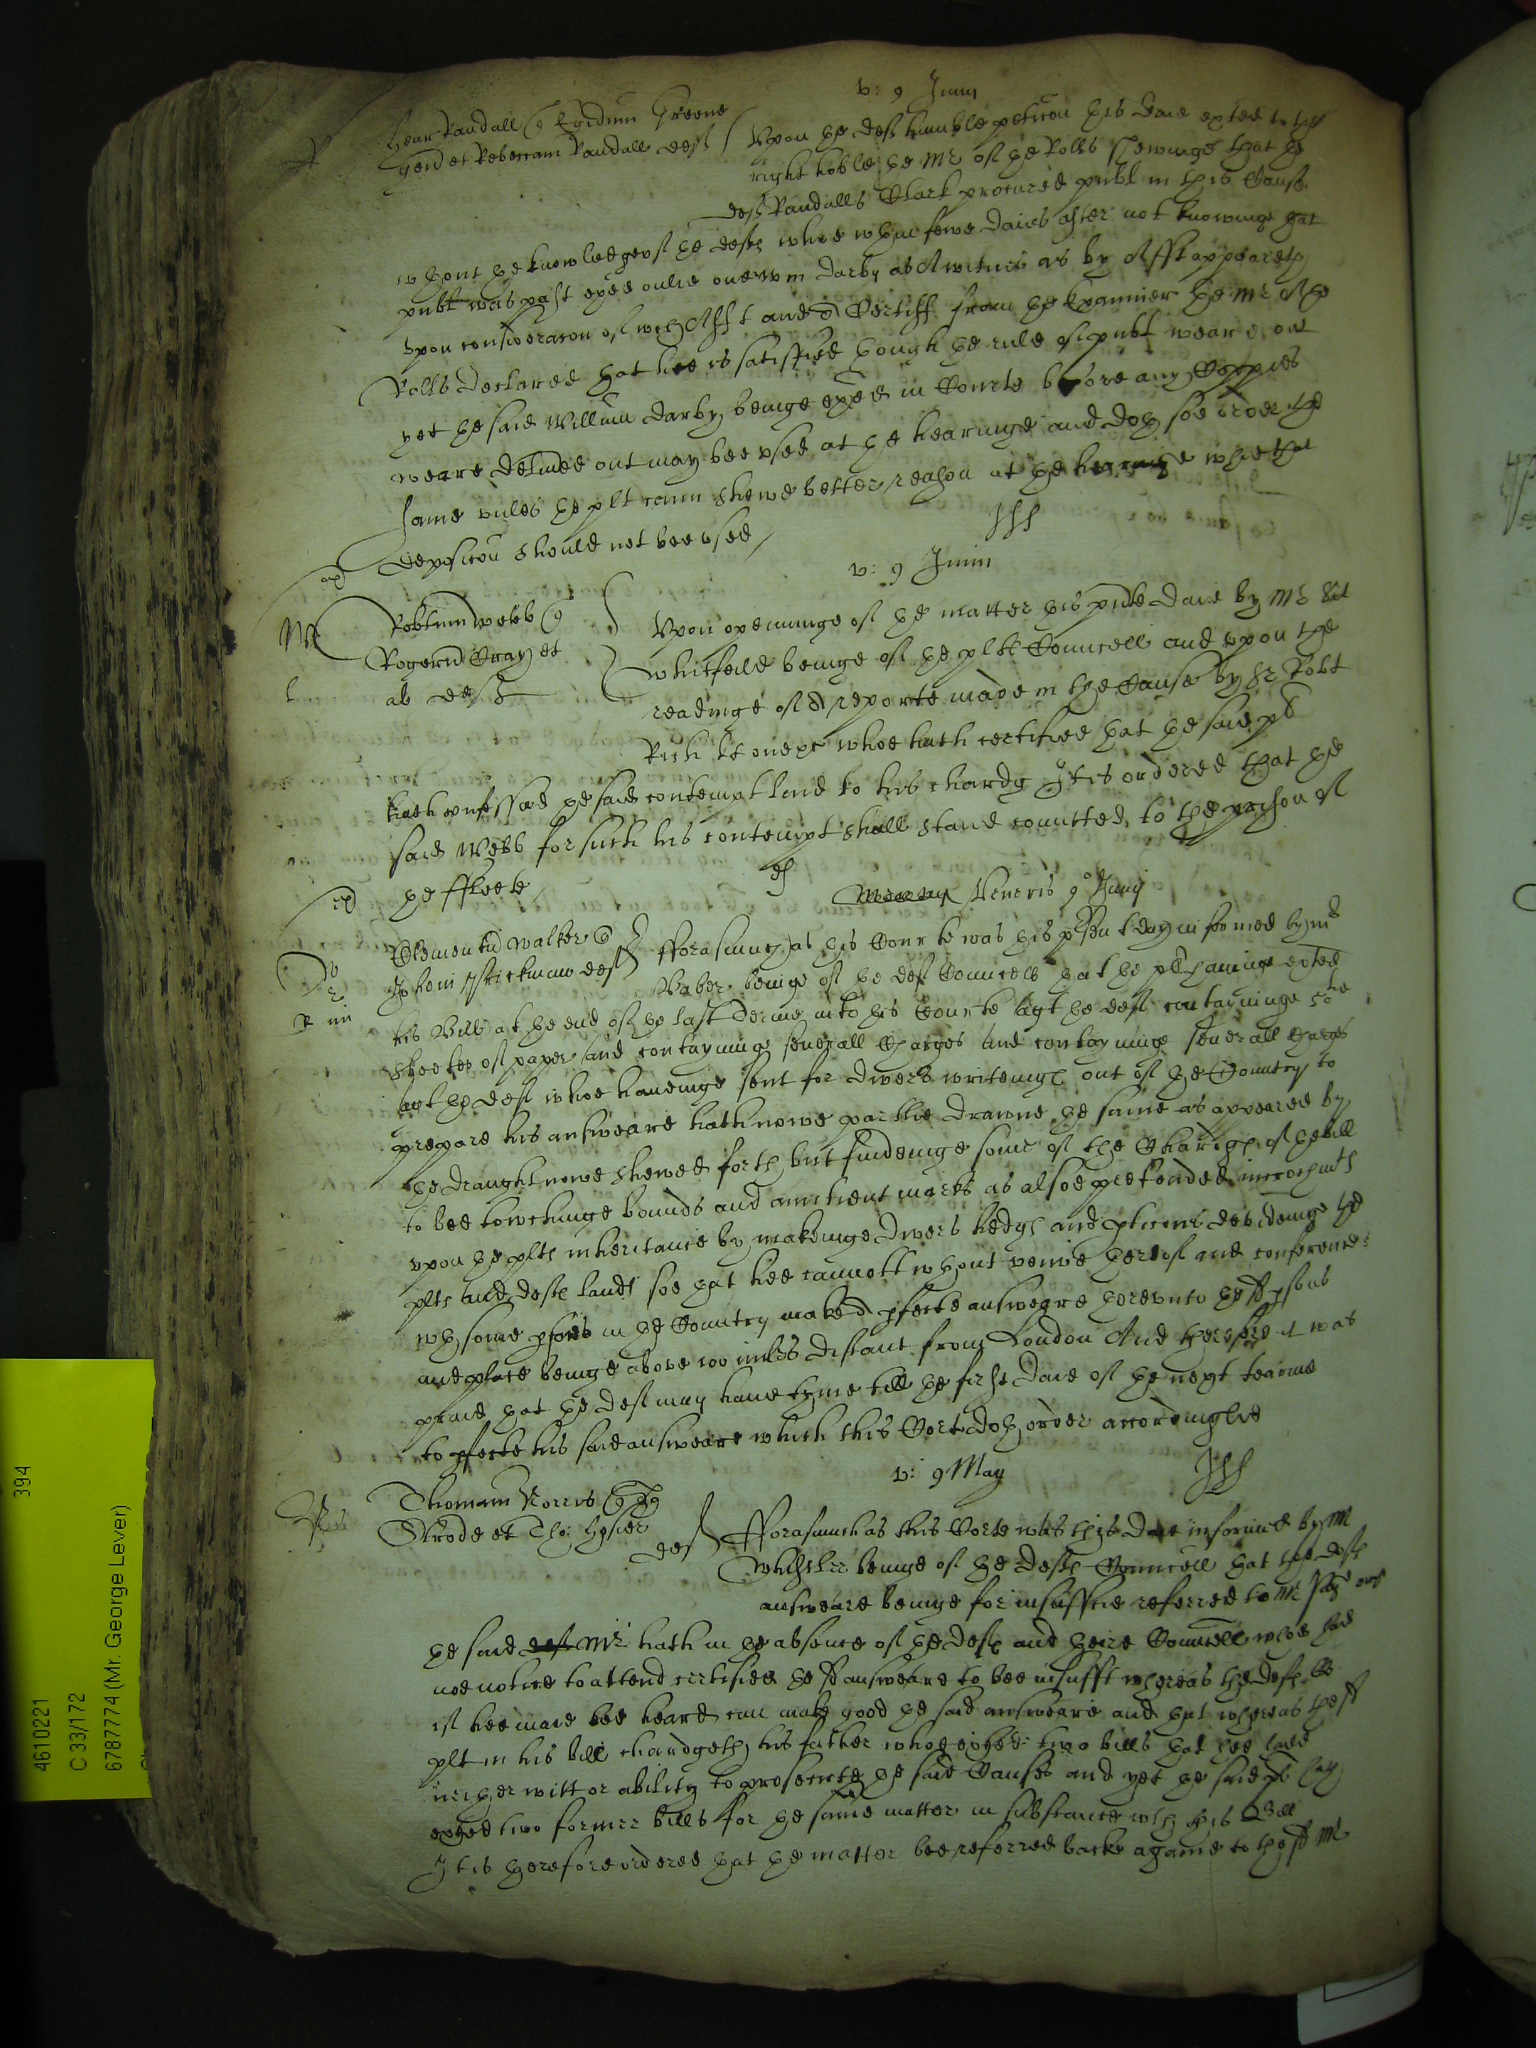 v: 9 Junii
Henr Randall Egidium Greene
gen et Rebeccam Randall def
Vpon the def humble peticon this daie exted to the
right hoble the Mr of the Rolls shewinge that the
def Randalls Clark procured publ in this Cause
wthout the knowledge of the defts whoe wthin fewe daies after not knowinge that
publ was past exed onlie one Wm Darby as A witnes as by Afft appeareth
vpon consideracon of wch Afft and a Certiff from the Examiner the Mr of the
Rolls declared that hee is satisfied though the rule of publ weare out
yet the said Willm Darby beinge exed in Courte before any Coppies
weare deliued out may bee vsed at the hearinge and doth soe order the
same vnles the plt cann shewe better reason at the hearinge whie that
deposicon should not bee vsed
v: 9 Junii
Robtum Webb
Rogerū Gray et
al def
Vpon openinge of the matter this pnte daie by Mr
Whitfeild beinge of the plts Councell and vpon the
readinge of a reporte made in the Cause by Sr Robt
Rich kt one &c whoe hath certified that the said
hath confessed the said contempt laid to his chardg It is ordered that the
said Webb for such his contempt shall stand comitted to the prison of
the ffleete
Veneris 9° Junij
Clementū Walker
Johem Stickman def
fforasmuch as this Courte was this psent day informed by mr
Baber beinge of the def Councell that the pt havinge exted
his Bill at the end of the last Terme into this Courte agt the deft contayninge
sheetes of paper and contayninge seuerall Charges and contayninge seuerall Charges
agt the deft whoe haveinge sent for divers writeings out of the Country to
prepare his answeare hath nowe partlie drawne the same as appeared by
the draught nowe shewed forth but findeinge some of the Chardgs of the bill
to bee towchinge bounds and auntient marks as alsoe pretended incrochmts
vpon the plts inheritance by makeinge divers hedgs and devideinge the
plts and defts lands soe that hee cannott wthout veiwe thereof and conference
wth some psons in the Country make a pfecte answeare therevnto the sd psons
and place beinge above 100 miles distant from London And therefore it was
praied that the deft may haue tyme till the first daie of the next tearme
to pfecte his said answeare which this Corte doth order accordinglie
v: 9 May
Thomam Norris
Strode et Tho: Hosier
def
fforasmuch as this Corte was this Daie informed by Mr
Whistler beinge of the defts Councell that the defts
answeare beinge for insufficie referred to Mr
the said def Mr hath in the absence of the defts and theire Councell whoe had
noe notice to attend certified the sd answeare to bee insufft whereas the defts
if hee maie bee heard can make good the said answeare and that whereas the sd
plt in his bill chardgeth his father whoe exhited two bills that hee had
neither witt or ability to prosecute the said Causes and yet the said
exhited two former bills for the same matter in substance wth this Bill
It is therefore ordered that the matter bee referred backe againe to the sd Mr
4610221
C 33/172
6787774 (Mr. George Lever)
394